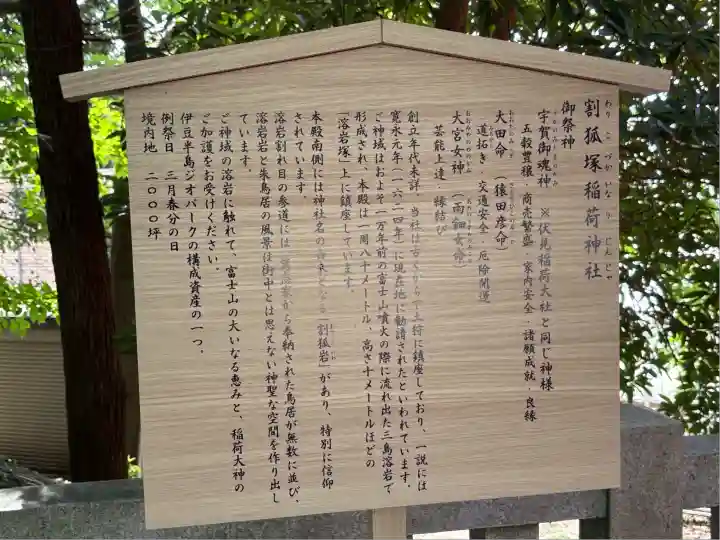 割狐塚稲荷神社
わりこづかいなりじんじゃ
御祭神
宇賀御魂神 ※伏見稲荷大社と同じ神様
五穀豊穣・商売繁盛・家内安全・諸願成就・良縁
大田命 (猿田彦命)
道拓き・交通安全・厄除開運
大宮女神 (雨細女命)
芸能上達・縁結び
創立年代未詳。当社は古くから 土狩に鎮座しており、一説には
寛永元年(一六二四年)に現在地に勧請されたといわれています。
ご神域はおよそ一万年前の富士山噴火の際に流れ出た三島溶岩で
形成され、本殿は一周八十メートル、高さ十メートルほどの
「溶岩塚」上に鎮座しています。
本殿南側には神社名の由来となる「割狐岩」があり、特別に信仰
されています。
溶岩割れ目の参道には から奉納された鳥居が無数に並び、
溶岩岩と朱鳥居の風景は街中とは思えない神聖な空間を作り出し
ています。
ご神域の溶岩に触れて、富士山の大いなる恵みと、稲荷大神の
ご加護をお受けください。
伊豆半島ジオパークの構成資産の一つ。
例祭日 三月春分の日
境内地 二〇〇〇坪